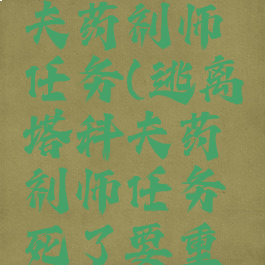 夫药剂师
任务(逃离
塔科夫药
剂师任务
死了要重